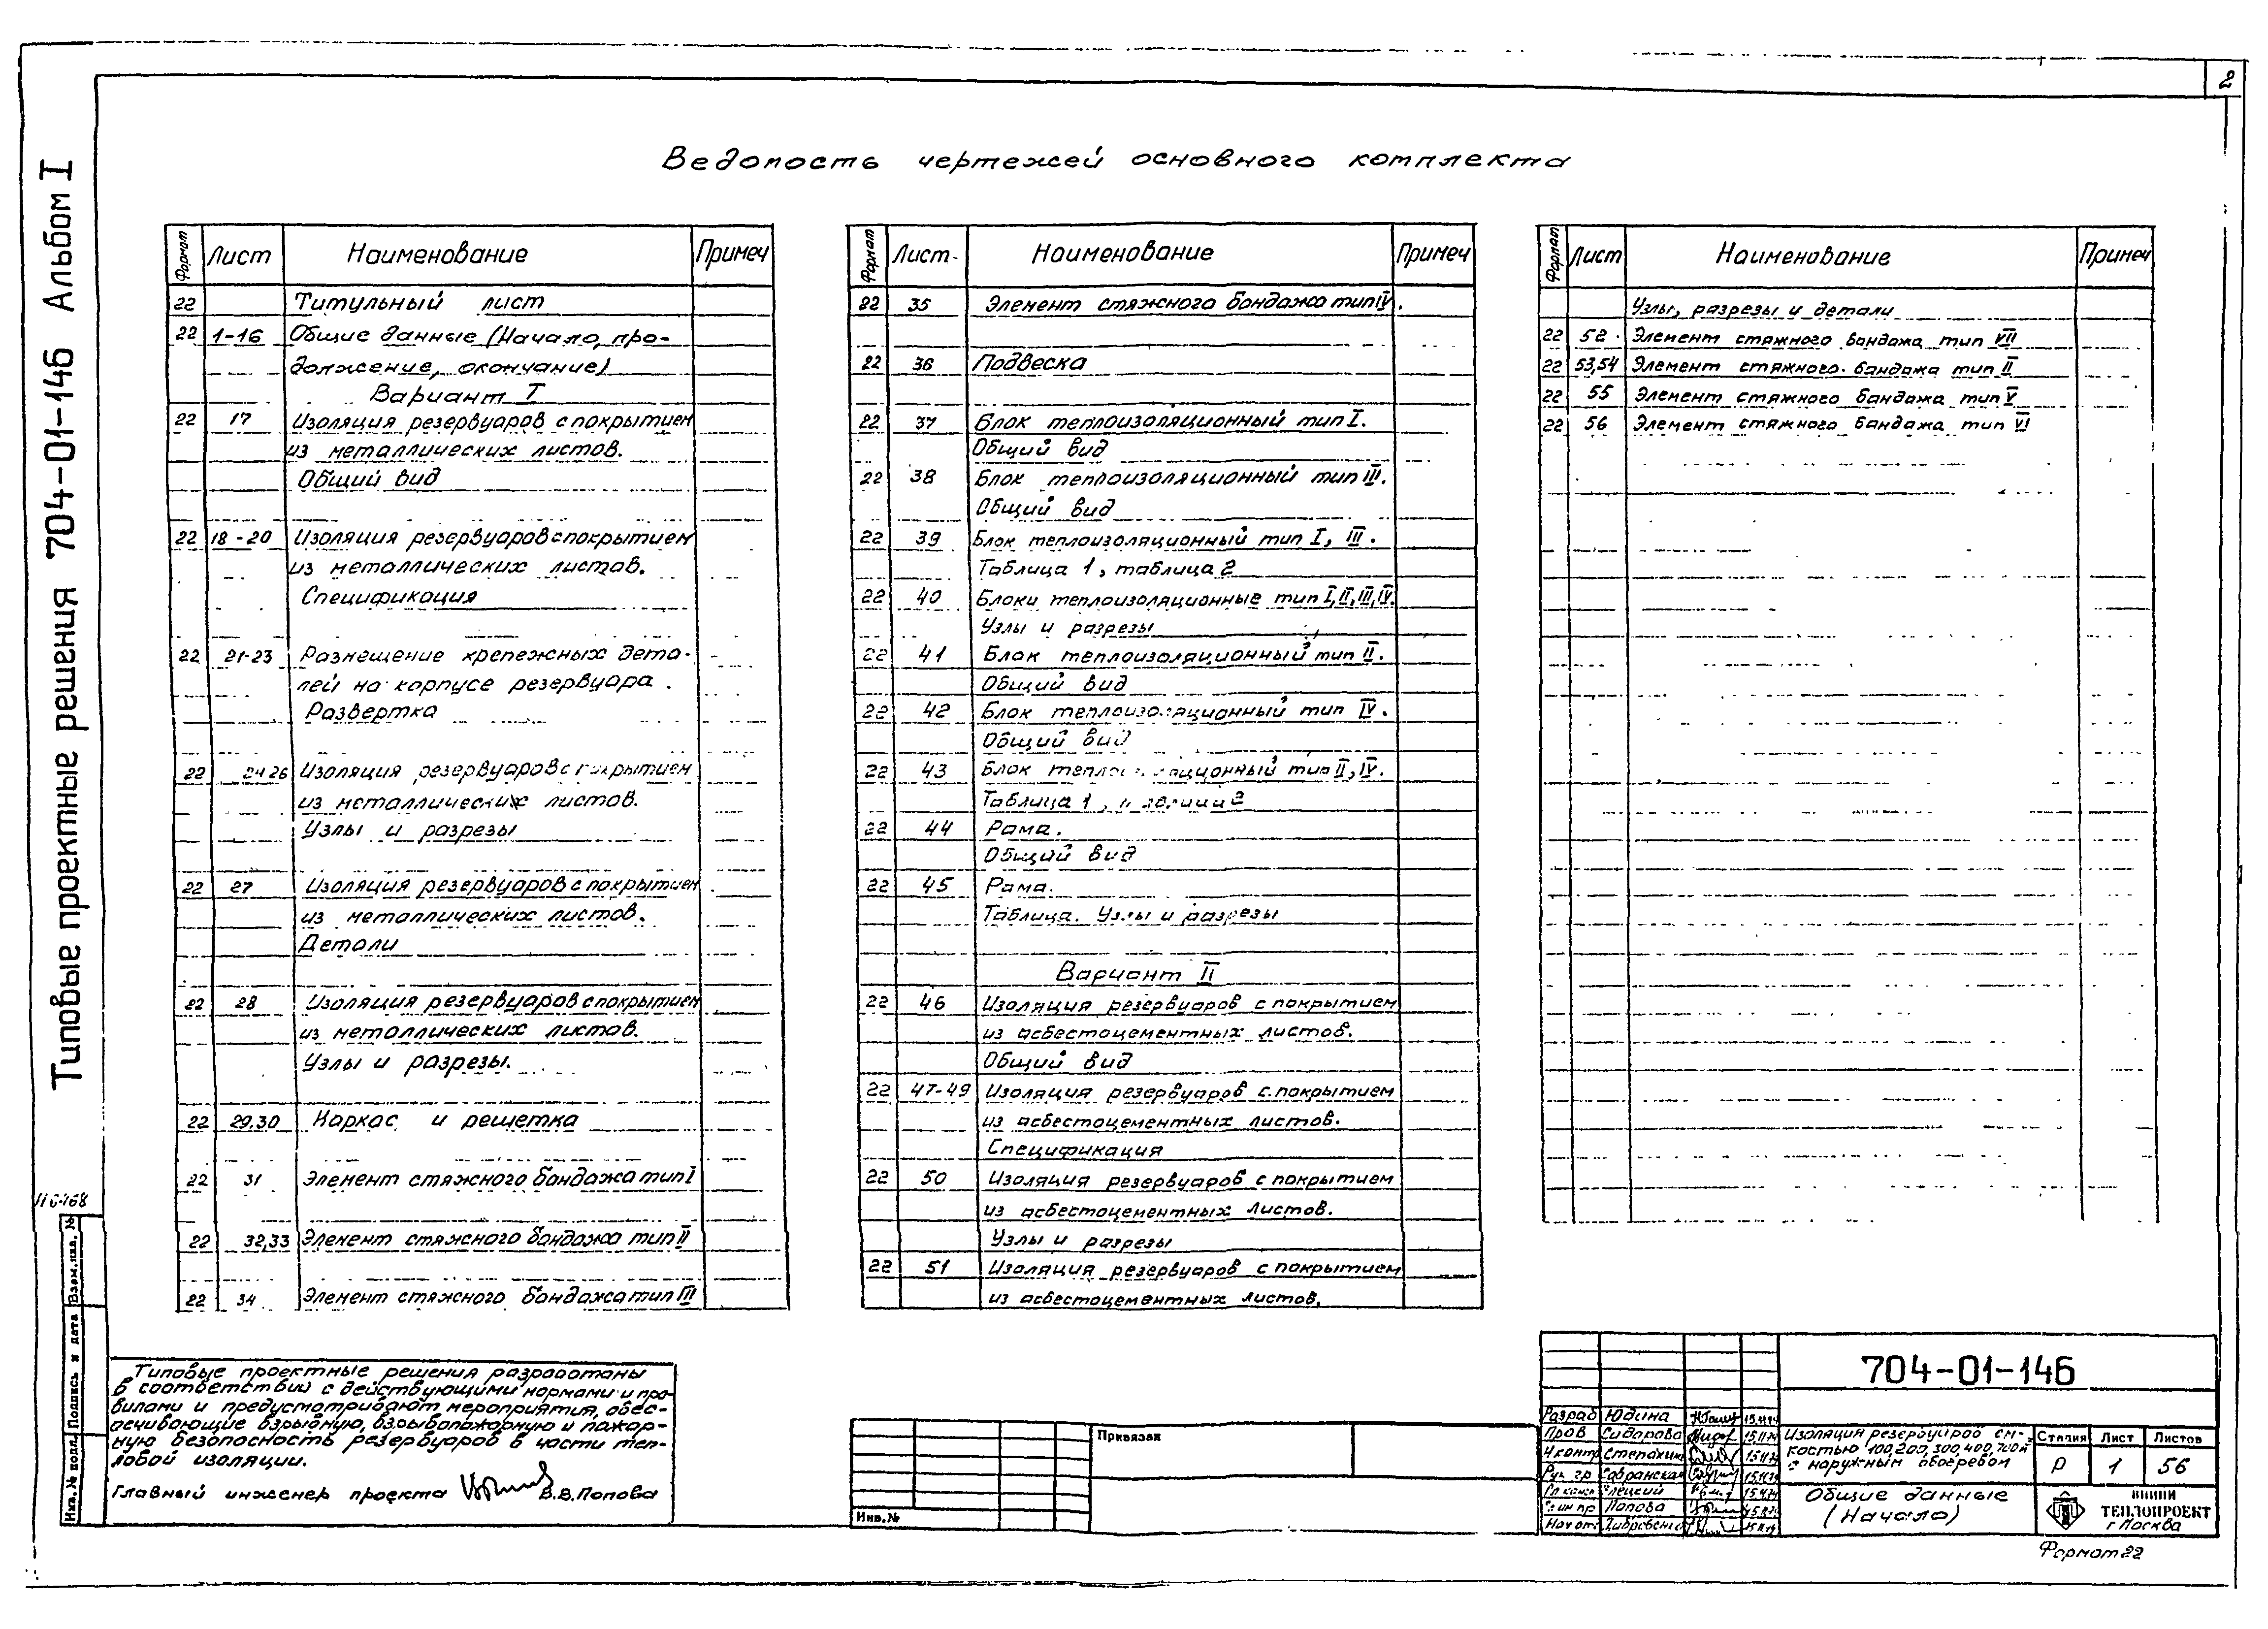 2
Типовые проектные решения 704-01-146 Альбом I
Ведомость чертежей основного комплекта
Формат Лист Наименование Примеч
22 Титульный лист
22 1-16 Общие данные (Начало, про-
должение, окончание)
Вариант I
22 17 Изоляция резервуаров с покрытием
из металлических листов.
Общий вид
22 18-20 Изоляция резервуаров с покрытием
из металлических листов.
Спецификация
22 21-23 Размещение крепежных дета-
лей на корпусе резервуара.
Развертка
22 24-26 Изоляция резервуаров с покрытием
из металлических листов.
Узлы и разрезы
22 27 Изоляция резервуаров с покрытием
из металлических листов.
Детали
22 28 Изоляция резервуаров с покрытием
из металлических листов.
Узлы и разрезы.
22 29,30 Каркас и решетка
22 31 Элемент стяжного бандажа тип I
22 32,33 Элемент стяжного бандажа тип II
22 34 Элемент стяжного бандажа тип III
Формат Лист Наименование Примеч
22 35 Элемент стяжного бандажа тип IV.
22 36 Подвеска
22 37 Блок теплоизоляционный тип I.
Общий вид
22 38 Блок теплоизоляционный тип III.
Общий вид
22 39 Блок теплоизоляционный тип I, III.
Таблица 1, таблица 2
22 40 Блоки теплоизоляционные тип I, II, III, IV.
Узлы и разрезы
22 41 Блок теплоизоляционный тип II.
Общий вид
22 42 Блок теплоизоляционный тип IV.
Общий вид
22 43 Блок теплоизоляционный тип II, IV.
Таблица 1, таблица 2
22 44 Рама.
Общий вид
22 45 Рама.
Таблица. Узлы и разрезы
Вариант II
22 46 Изоляция резервуаров с покрытием
из асбестоцементных листов.
Общий вид
22 47-49 Изоляция резервуаров с покрытием
из асбестоцементных листов.
Спецификация
22 50 Изоляция резервуаров с покрытием
из асбестоцементных листов.
Узлы и разрезы
22 51 Изоляция резервуаров с покрытием
из асбестоцементных листов.
Формат Лист Наименование Примеч
Узлы, разрезы и детали
22 52 Элемент стяжного бандажа тип VII
22 53,54 Элемент стяжного бандажа тип II
22 55 Элемент стяжного бандажа тип V
22 56 Элемент стяжного бандажа тип VI
Инв. № подл. Подпись и дата Взам. инв. №
Типовые проектные решения разработаны
в соответствии с действующими нормами и пра-
вилами и предусматривают мероприятия, обес-
печивающие взрывную, взрывопожарную и пожар-
ную безопасность резервуаров в части теп-
ловой изоляции.
Главный инженер проекта В.В. Попова
Привязан
Инв.№
704-01-146
Разраб Юдина
Пров Сидорова
Н контр Степахина
Рук гр Савранская
Попова
Изоляция резервуаров ем-
костью 100,200,300,400,700м³
с наружным обогревом
Стадия Лист Листов
Р 1 56
Общие данные
(Начало)
ВНИПИ
ТЕПЛОПРОЕКТ
г Москва
Формат 22